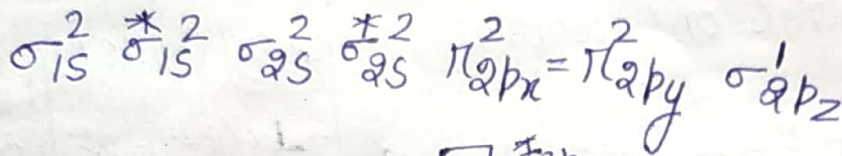 σ1s² σ*1s² σ2s² σ*2s² π2px² = π2py² σ2pz¹